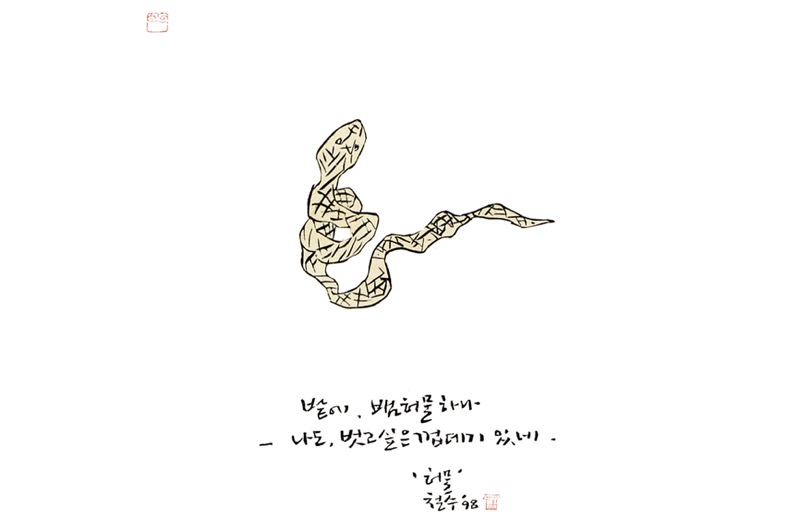 밭에, 뱀허물하나
– 나도, 벗고싶은껍데기 있네.
'허물'
철수 '98